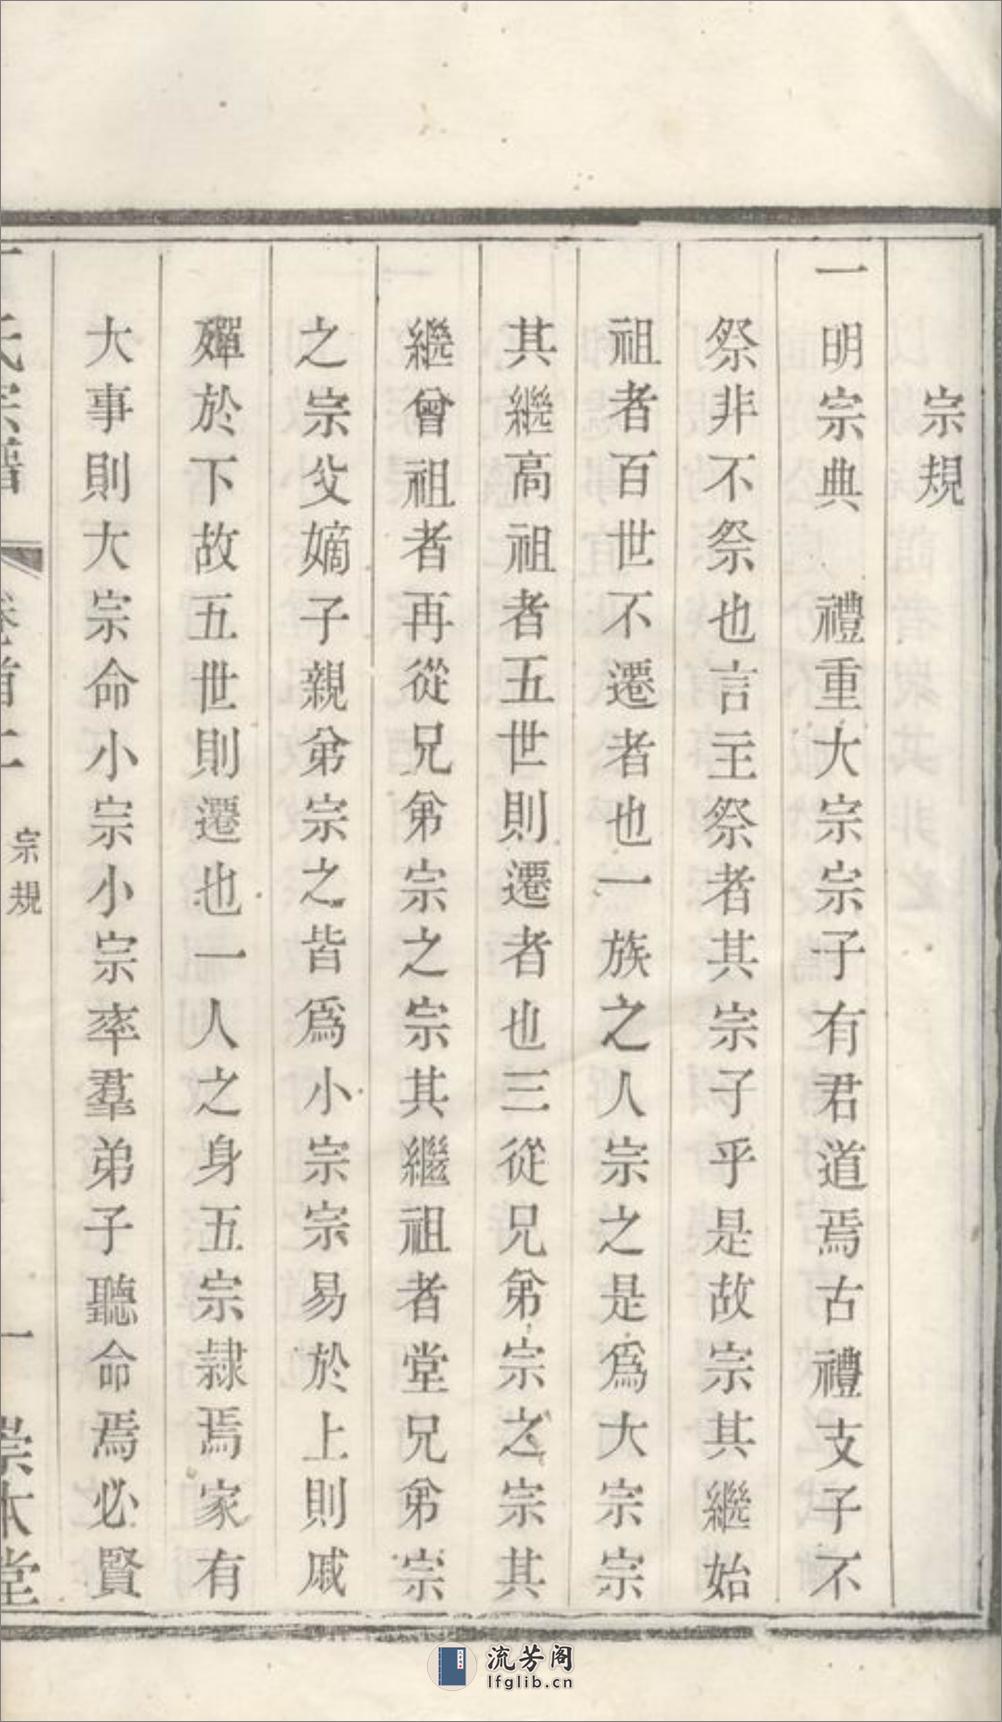 宗規
一明宗典　禮重大宗宗子有君道焉古禮支子不
祭非不祭也言主祭者其宗子乎是故宗其繼始
祖者百世不遷者也一族之人宗之是爲大宗宗
其繼高祖者五世則遷者也三從兄弟宗之宗其
繼曾祖者再從兄弟宗之宗其繼祖者堂兄弟宗
之宗父嫡子親弟宗之皆爲小宗宗易於上則戚
殫於下故五世則遷也一人之身五宗隸焉家有
大事則大宗命小宗小宗率羣弟子聽命焉必賢
氏宗譜
卷首上
宗規
一
崇本堂
流芳阁
lfglib.cn